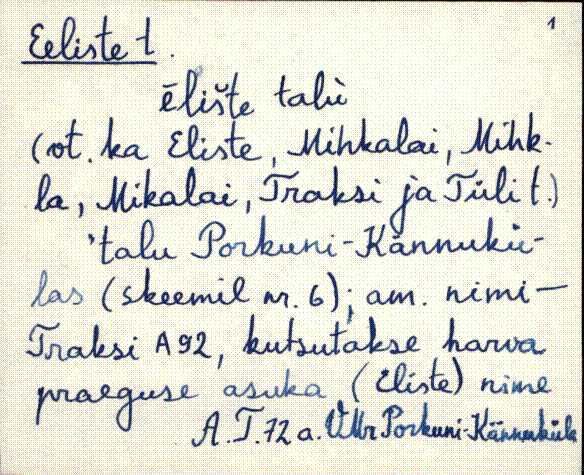 1
Eeliste t.
ēlište talù
(vt. ka Eliste, Mihkalai, Mihk-
la, Mikalai, Traksi ja Tüli t.)
'talu Porkuni-Kännukü-
las (skeemil nr. 6); am. nimi—
Traksi A 92, kutsutakse harva
praeguse asuka (Eliste) nime
A.T. 72 a. VMr Porkuni-Kännuküla